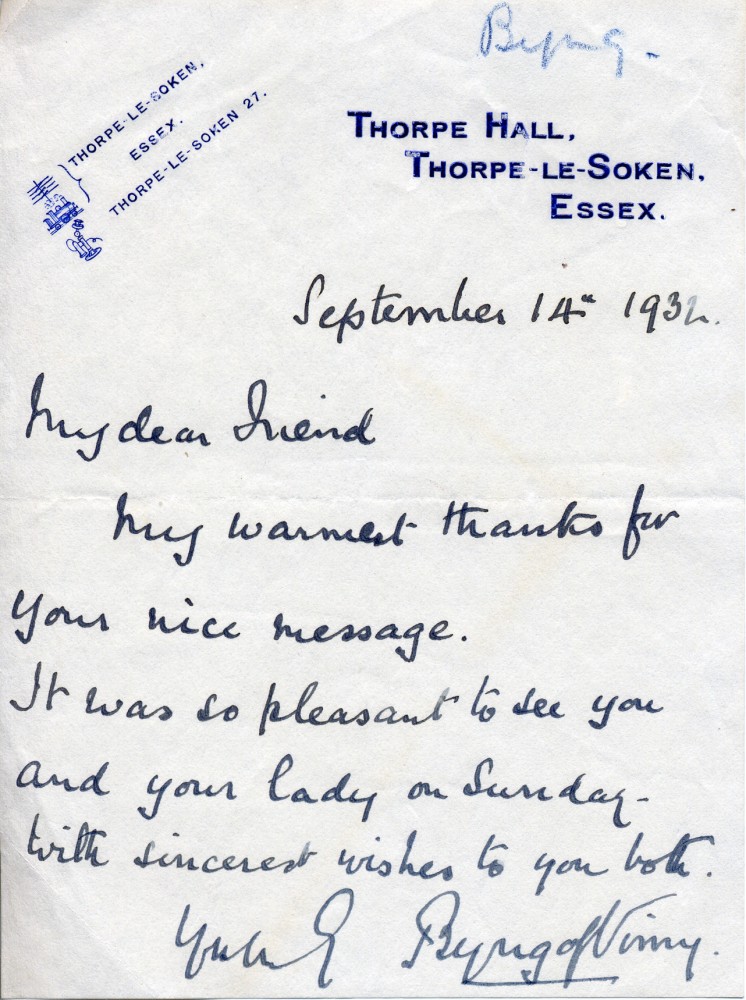 Byng -
THORPE-LE-SOKEN,
ESSEX.
THORPE-LE-SOKEN 27.
THORPE HALL,
THORPE-LE-SOKEN,
ESSEX.
September 14th 1932.
My dear Friend
My warmest thanks for
your nice message.
It was so pleasant to see you
and your lady on Sunday -
With sincerest wishes to you both.
Byng of Vimy.